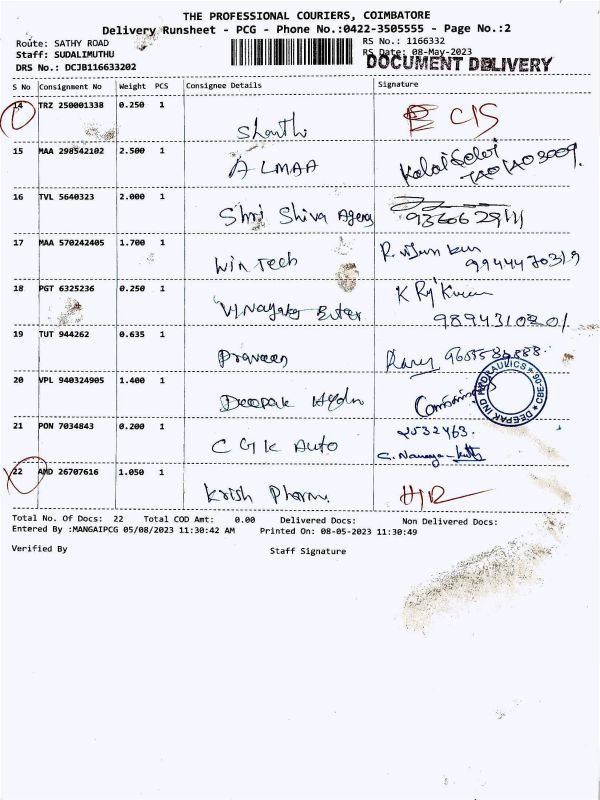 THE PROFESSIONAL COURIERS, COIMBATORE
Delivery Runsheet - PCG - Phone No.:0422-3505555 - Page No.:2
Route: SATHY ROAD
RS No.: 1166332
Staff: SUDALIMUTHU
RS Date: 08-May-2023
DOCUMENT DELIVERY
DRS No.: DCJB116633202
S No Consignment No Weight PCS Consignee Details Signature
14 TRZ 250001338 0.250 1
Shanthi CIS
15 MAA 298542102 2.500 1
ALMAA
16 TVL 5640323 2.000 1
Shri Shiva Agency
17 MAA 570242405 1.700 1
Win Tech
18 PGT 6325236 0.250 1
Vinayaga
19 TUT 944262 0.635 1
Praveen
20 VPL 940324905 1.400 1
Deepak Hydro
DEEPAK IND HYDRAULICS
21 PON 7034843 0.200 1
CGK Auto 2532463.
22 AMD 26707616 1.050 1
Krish Pharma
Total No. Of Docs: 22 Total COD Amt: 0.00 Delivered Docs: Non Delivered Docs:
Entered By :MANGAIPCG 05/08/2023 11:30:42 AM Printed On: 08-05-2023 11:30:49
Verified By Staff Signature